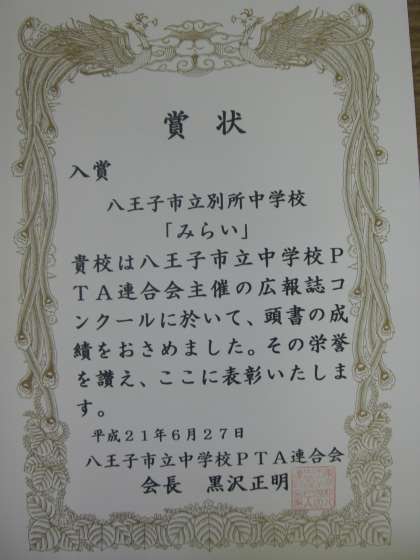 賞状
入賞
八王子市立別所中学校
「みらい」
貴校は八王子市立中学校P
TA連合会主催の広報誌コ
ンクールに於いて、頭書の成
績をおさめました。その栄誉
を讃え、ここに表彰いたしま
す。
平成21年6月27日
八王子市立中学校PTA連合会
会長 黒沢正明